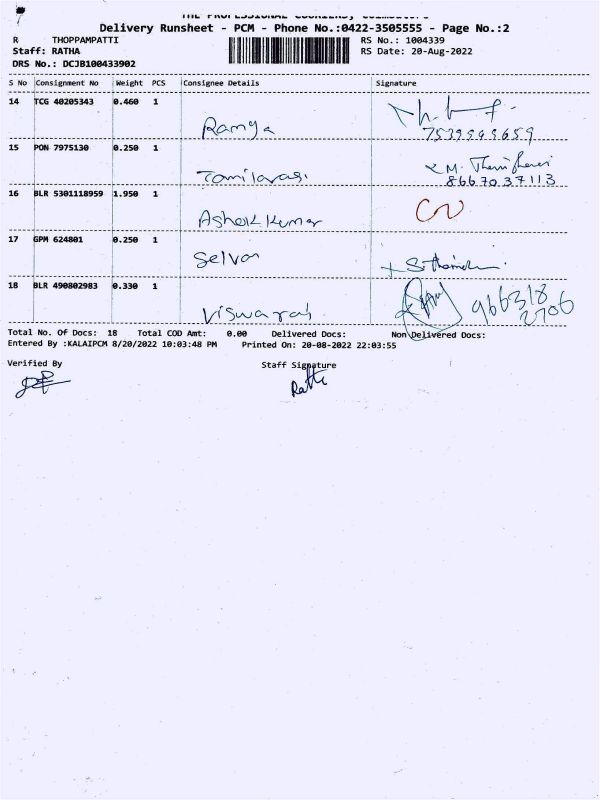 THE PROFESSIONAL COURIERS, Coimbatore
Delivery Runsheet - PCM - Phone No.:0422-3505555 - Page No.:2
R THOPPAMPATTI RS No.: 1004339
Staff: RATHA RS Date: 20-Aug-2022
DRS No.: DCJB100433902
S No Consignment No Weight PCS Consignee Details Signature
14 TCG 40205343 0.460 1
Ramya 7539949659
15 PON 7975130 0.250 1
Tamilarasi 8667037113
16 BLR 5301118959 1.950 1
Ashok Kumar
17 GPM 624801 0.250 1
Selvan
18 BLR 490802983 0.330 1
Viswaraj 966318
2706
Total No. Of Docs: 18 Total COD Amt: 0.00 Delivered Docs: Non Delivered Docs:
Entered By :KALAIPCM 8/20/2022 10:03:48 PM Printed On: 20-08-2022 22:03:55
Verified By Staff Signature
Ratha